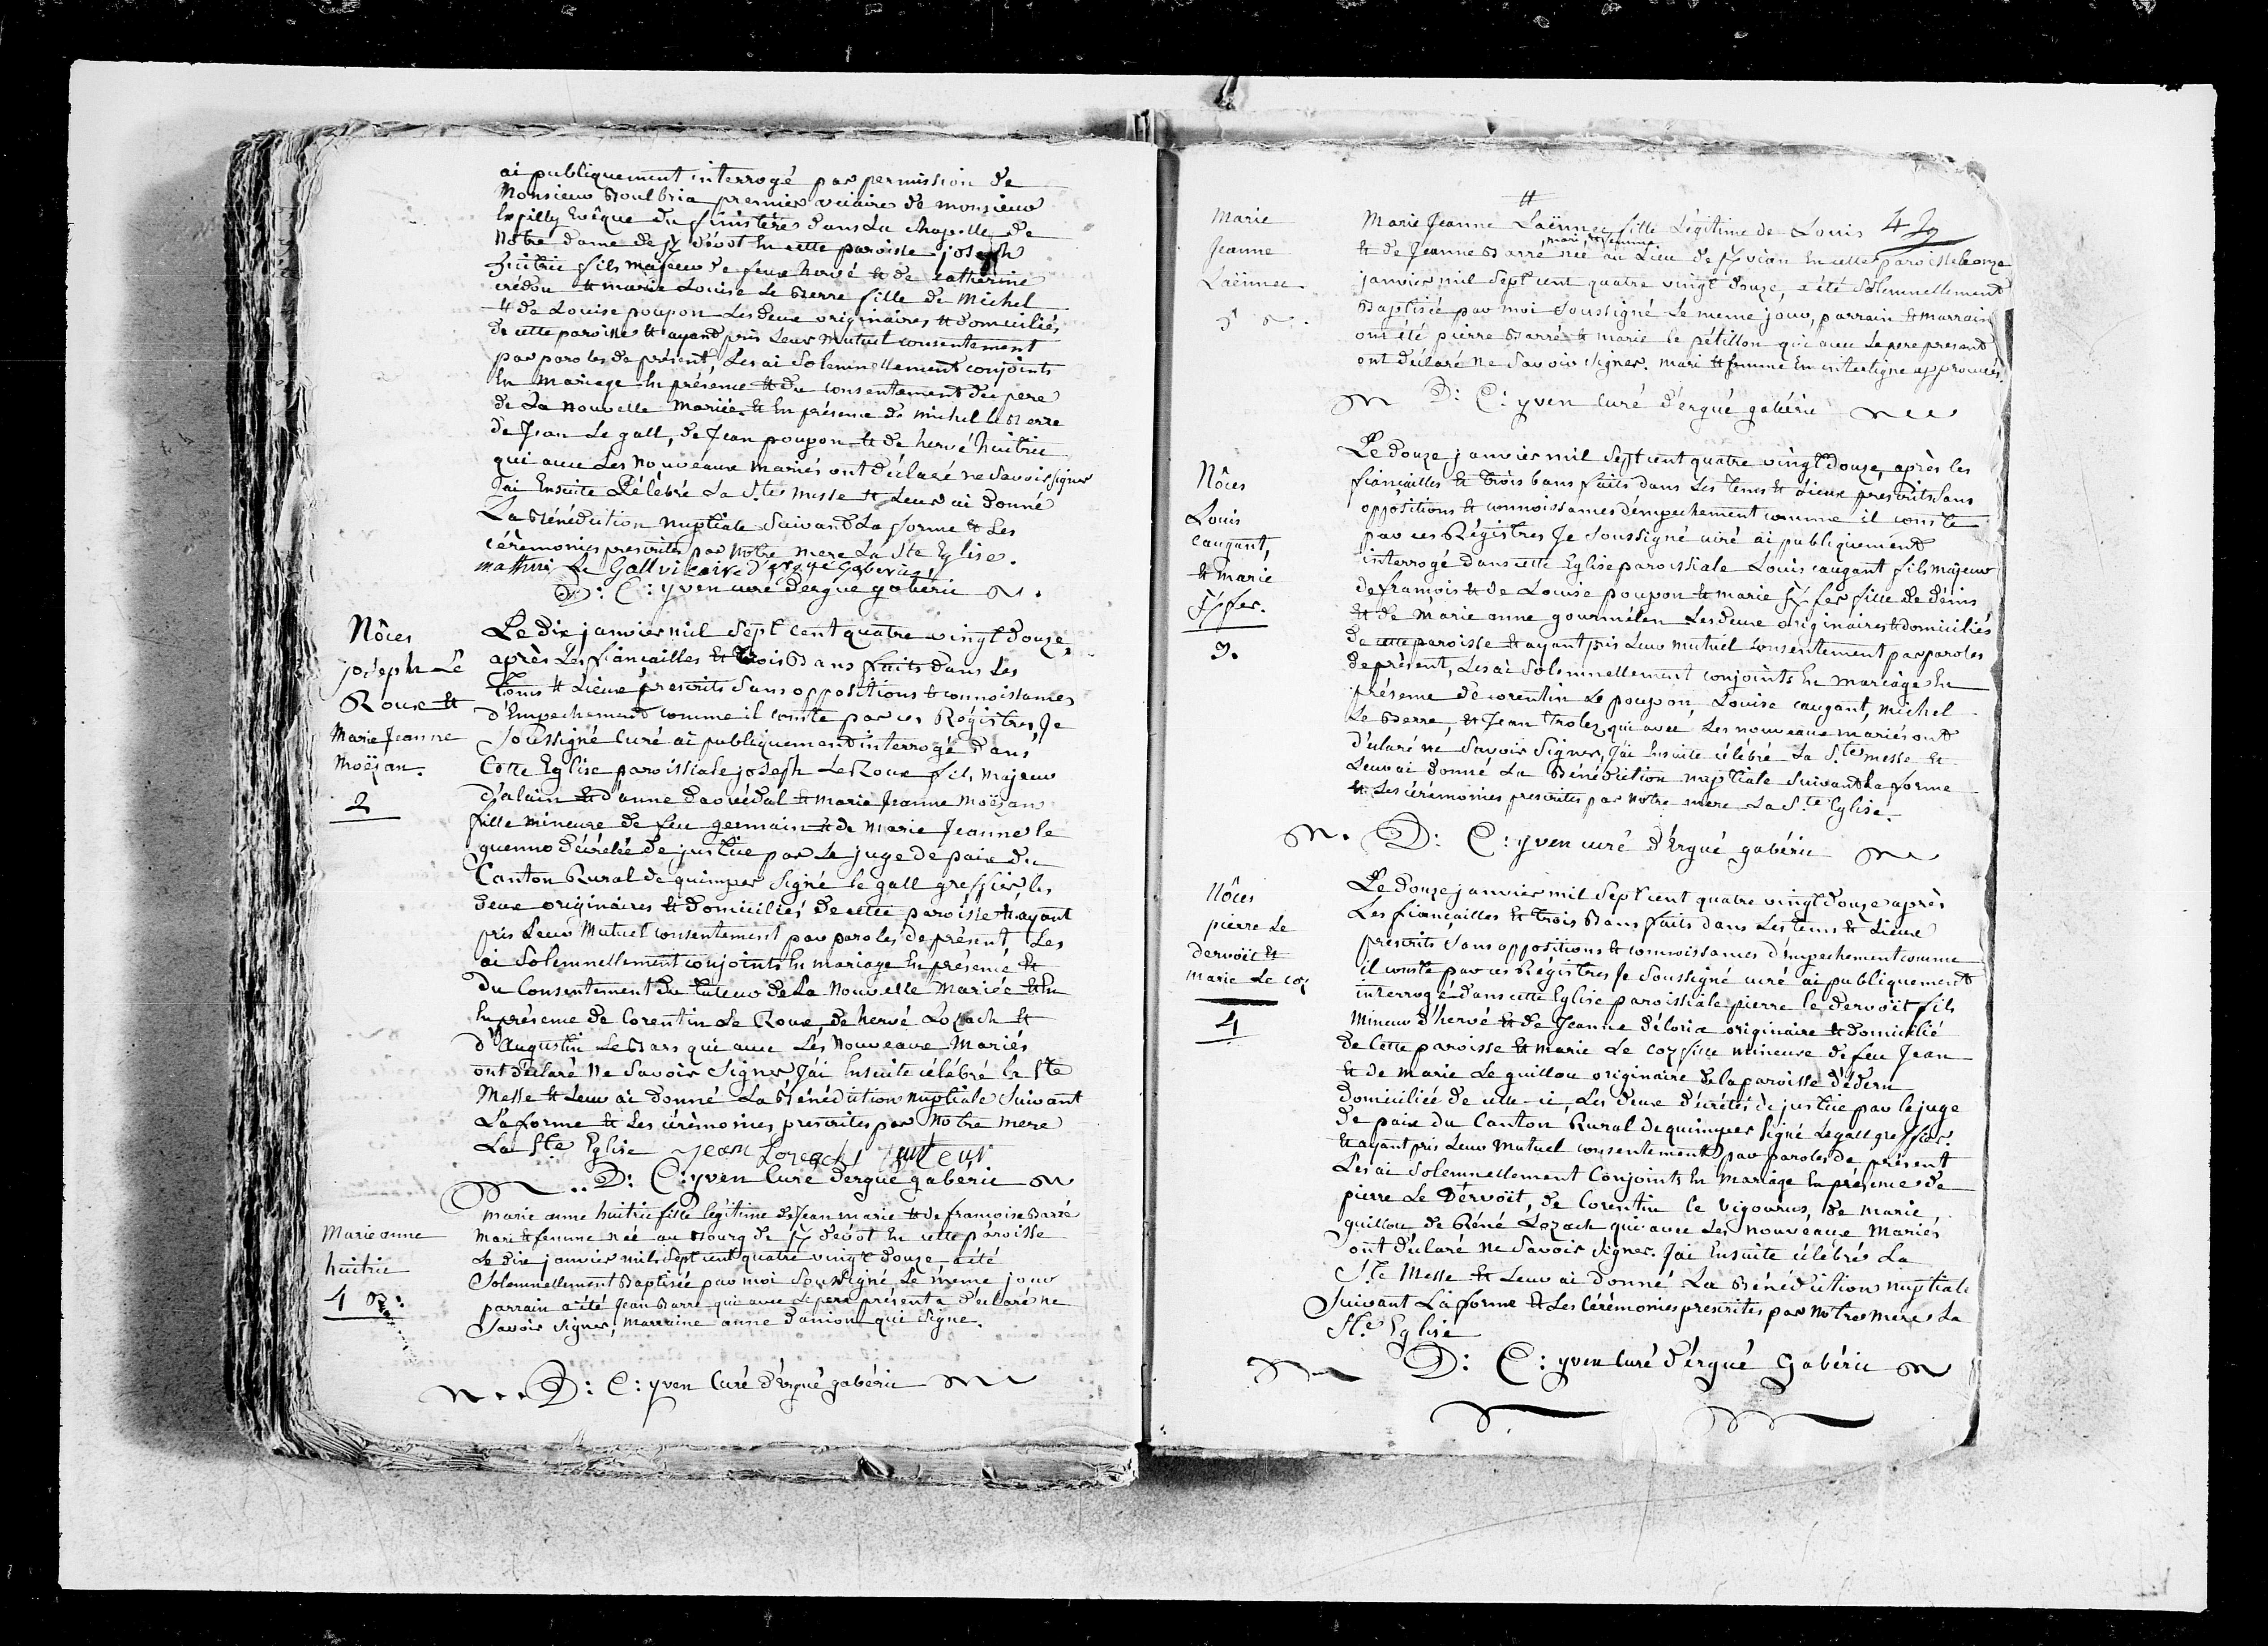 ai publiquement interrogé par permission de
Monsieur Boulbria premier vicaire de monsieur
Expilly Evêque du finistère dans la chapelle de
Notre dame de Kdévot En cette paroisse joseph
huitric fils majeur de feux hervé et de catherine
crédou et marie Louise Le Berre fille de Michel
et de Louise poupon Les deux originaires et domiciliés
de cette paroisse et ayant pris Leur mutuel consentement
par paroles de présent, Les ai Solemnellement conjoints
En mariage En présence et du consentement du pere
de La nouvelle Mariée et En présence de michel le Berre
de Jean Le gall, de Jean poupon et de hervé huitric
qui avec Les Nouveaux mariés ont déclaré ne savoir signer
J'ai Ensuite Célébré La Ste messe et Leur ai donné
La Bénédiction nuptiale Suivant La forme et Les
cérémonies prescrites par Notre mere La Ste Eglise.
Le Gall vicaire d'ergué Gaberic
D: C: yven curé d'ergué gabéric
Nôces
joseph Le
Roux et
Marie Jeanne
Moëjan.
2
Le dix janvier mil Sept cent quatre vingt douze,
après Les fiançailles et trois Bans faits dans Les
tems et Lieux prescrits Sans oppositions et connoissances
d'Empechement comme il conste par ces Régistres, Je
Soussigné Curé ai publiquement interrogé dans
Cette Eglise paroissiale joseph Le Roux fils Majeur
d'alain et d'anne Daouédal et Marie Jeanne Moëjan
fille mineure de feu germain et de Marie Jeanne le
guenno décrétée de justice par Le juge de paix du
Canton Rural de quimper Signé le gall greffier les
deux originaires et domiciliés de cette paroisse et ayant
pris Leur Mutuel consentement par paroles de présent, Les
ai Solemnellement conjoints En mariage En présence et
du Consentement du tuteur de La Nouvelle Mariée et En
En présence de Corentin Le Roux, de hervé Lozach et
d'Augustin Le Bars qui avec Les Nouveaux Mariés
ont déclaré Ne Savoir Signer J'ai Ensuite célébré la Ste
Messe et Leur ai donné La Bénédiction Nuptiale Suivant
La forme et Les cérémonies prescrites par Notre mere
La Ste Eglise Jean Lozach tuteur
D: C: yven Curé d'ergué gabéric
Marie anne
huitric
1
Marie anne huitric fille légitime de Jean marie et de françoise Barré
Mari et femme née au Bourg de K devot En cette paroisse
Le dix janvier mil Sept cent quatre vingt douze a été
Solemnellement Baptisée par moi Soussigné Le même jour
parrain a été Jean Barré qui avec Le pere présent a déclaré ne
Savoir Signer, Marraine anne Danion qui Signe.
D: C: yven Curé d'Ergué gabéric
Marie
Jeanne
Laënnec
Marie Jeanne Laënnec fille Légitime de Louis
mari et femme
et de Jeanne Barré née au Lieu de Kvian En cette paroisse le onze
janvier mil Sept cent quatre vingt douze, a été Solemnellement
Baptisée par moi Soussigné Le meme jour, parrain et marrain
ont été pierre Barré et marie le pétillon qui avec Le pere present
ont déclaré Ne Savoir Signer. mari et femme En interligne approuvés.
D: C: yven Curé d'ergué gabéric
Nôces
Louis
caugant,
et Marie
K/fer.
3.
Le douze janvier mil Sept cent quatre vingt douze, après les
fiançailles et trois bans faits dans Les tems et Lieux prescrits Sans
oppositions et connoissances d'Empechement comme il conste
par ces Régistres Je Soussigné curé ai publiquement
interrogé dans cette Eglise paroissiale Louis caugant fils majeur
de francois et de Louise poupon et marie K/fer fille de dénis
et de Marie anne gourmélen Les deux originaires et domiciliés
de cette paroisse et ayant pris Leur mutuel consentement par paroles
de présent, Les ai Solemnellement conjoints En mariage En
présence de corentin Le poupon, Louise caugant, michel
Le Berre, et Jean trolez qui avec Les nouveaux mariés ont
déclaré ne Savoir Signer, J'ai Ensuite célébré La Ste messe et
Leur ai donné La Bénédiction nuptiale Suivant La forme
et Les cérémonies prescrites par Notre mere La Ste Eglise.
D: C: yven curé d'Ergué gabéric
Nôces
pierre Le
dervoët et
Marie Le coz
4
Le douze janvier mil Sept cent quatre vingt douze après
Les fiançailles et trois Bans faits dans Les tems et Lieux
prescrits Sans oppositions et connoissances d'Empechement comme
il conste par ces Régistres Je Soussigné curé ai publiquement
interrogé dans cette Eglise paroissiale pierre le dervoët fils
Mineur d'hervé et de Jeanne Déloria originaire et domicilié
de Cette paroisse et Marie Le coz fille mineure de feu Jean
et de Marie Le guillou originaire de la paroisse d'Edern
domiciliée de celle-ci, Les deux décrétés de justice par le juge
de paix du Canton Rural de quimper Signé Le gall greffier.
et ayant pris Leur Mutuel consentement par paroles de présent
Les ai Solemnellement Conjoints En Mariage En présence de
pierre Le Dervoët, de Corentin le Vigourus, de Marie
guillou de Réné Lozach qui avec Les nouveaux Mariés
ont déclaré ne Savoir Signer. J'ai Ensuite célébré La
Ste Messe et Leur ai donné La Bénédiction nuptiale
Suivant La forme et Les Cérémonies prescrites par Notre Mere La
Ste Eglise
D: C: yven Curé d'érgué Gabéric